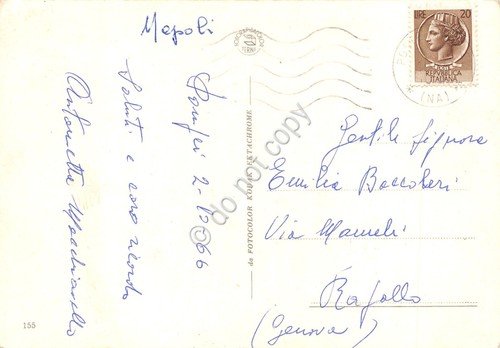 Napoli
Pompei 2-12-66
Saluti e caro ricordo
Antonietta
LIRE 20
REPUBBLICA
ITALIANA
(NA)
Gentile Signora
Emilia Boccoleri
Via Mameli
Rapallo
(Genova)
da FOTOCOLOR KODAK EKTACHROME
155
do not copy